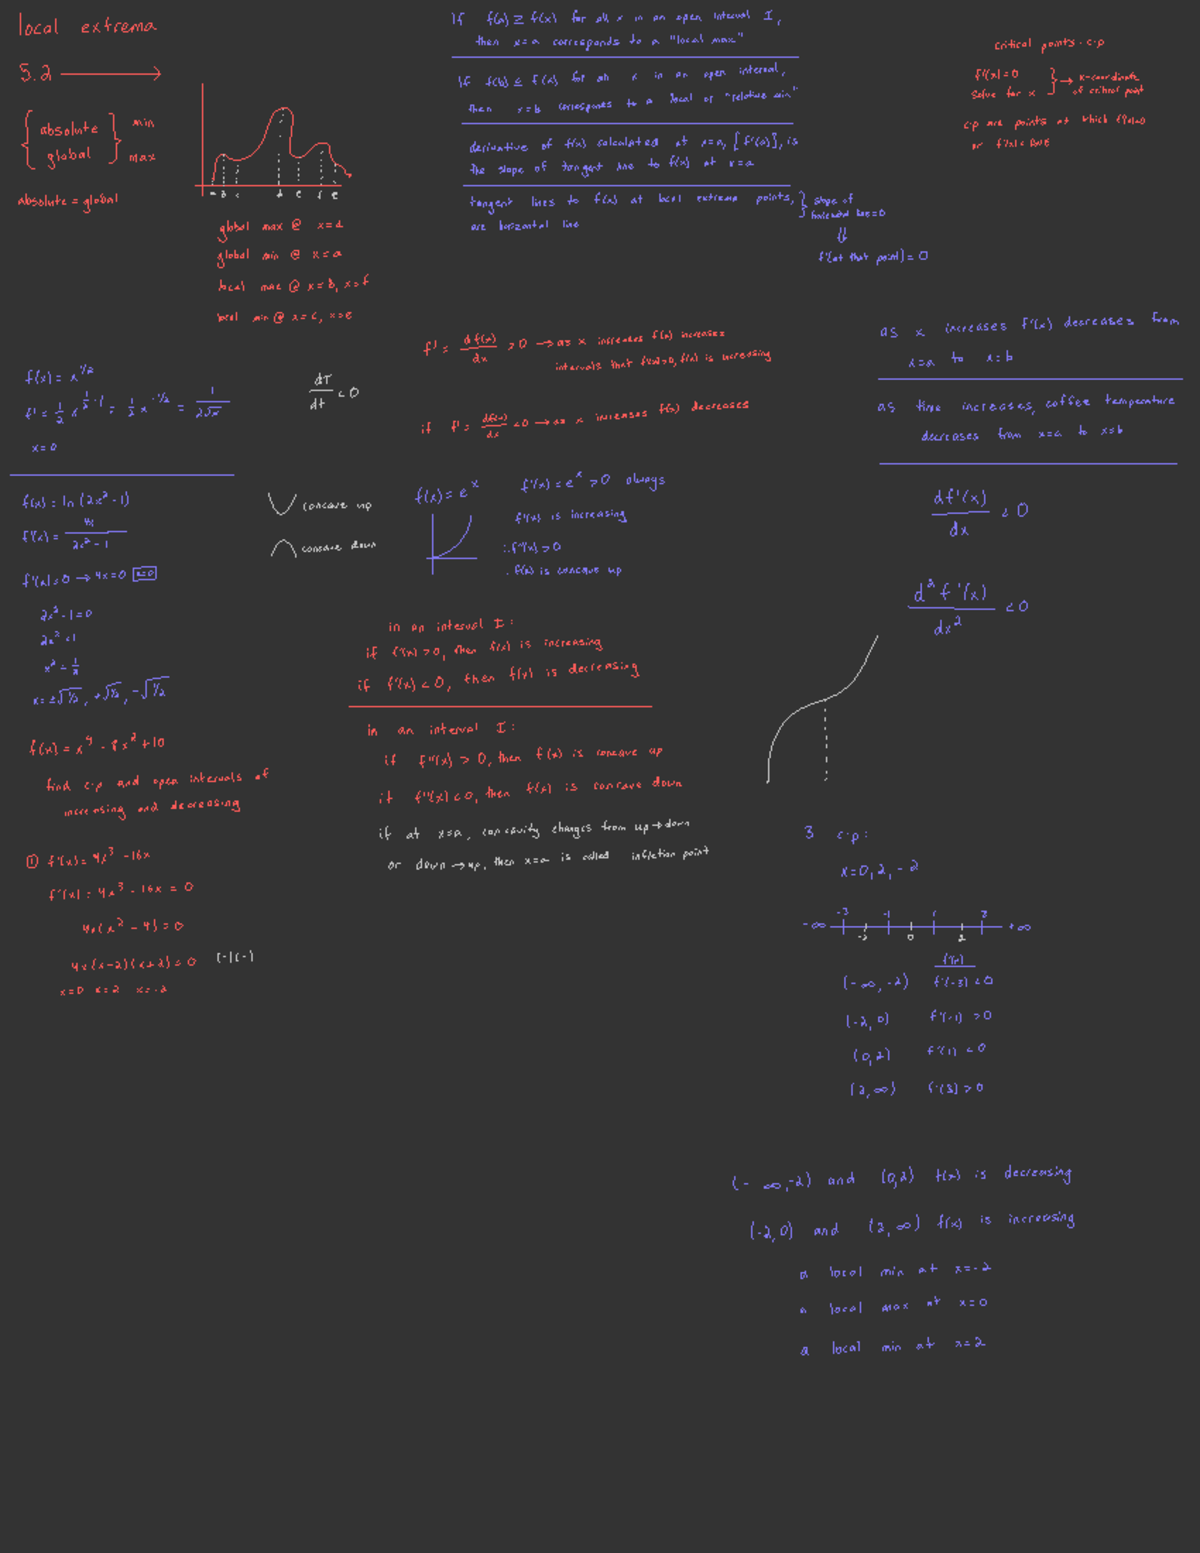 local extrema
5.2
absolute
global
min
max
absolute = global
a b c d e f g
global max @ x=d
global min @ x=a
local max @ x=b, x=f
local min @ x=c, x=e
If f(a) ≥ f(x) for all x in an open interval I,
then x=a corresponds to a "local max"
If f(b) ≤ f(x) for all x in an open interval,
then x=b corresponds to a local or "relative min"
derivative of f(x) calculated at x=a, [f'(a)], is
the slope of tangent line to f(x) at x=a
tangent lines to f(x) at local extrema points,
are horizontal line
slope of
horizontal line=0
⇓
f'(at that point)=0
critical points - c.p
f'(x)=0
solve for x
→ x-coordinate
of critical point
c.p are points at which f'(x)=0
or f'(x)= DNE
f(x) = x^1/2
f' = 1/2 x^(1/2 - 1) = 1/2 x^-1/2 = 1/(2√x)
x=0
dT/dt < 0
f' = df(x)/dx > 0 → as x increases f(x) increases
intervals that f'(x)>0, f(x) is increasing
if f' = df(x)/dx < 0 → as x increases f(x) decreases
as x increases f'(x) decreases from
x=a to x=b
as time increases, coffee temperature
decreases from x=a to x=b
df'(x)/dx < 0
d²f'(x)/dx² < 0
f(x) = ln(2x²-1)
f'(x) = 4x/(2x²-1)
f'(x)=0 → 4x=0 x=0
2x²-1=0
2x²=1
x² = 1/2
x= ±√1/2, +√1/2, -√1/2
concave up
concave down
f(x) = e^x
f'(x) = e^x > 0 always
f'(x) is increasing
∴ f''(x) > 0
f(x) is concave up
in an interval I:
if f'(x) > 0, then f(x) is increasing
if f'(x) < 0, then f(x) is decreasing
in an interval I:
if f''(x) > 0, then f(x) is concave up
if f''(x) < 0, then f(x) is concave down
if at x=a, concavity changes from up→down
or down→up, then x=a is called inflection point
f(x) = x⁴ - 8x² + 10
find c.p and open intervals of
increasing and decreasing
① f'(x) = 4x³ - 16x
f'(x) = 4x³ - 16x = 0
4x(x² - 4) = 0
4x(x-2)(x+2) = 0 (-)(-)
x=0 x=2 x=-2
3 c.p:
x=0, 2, -2
-∞ -3 -2 -1 0 1 2 3 +∞
f'(x)
(-∞, -2) f'(-3) < 0
(-2, 0) f'(-1) > 0
(0, 2) f'(1) < 0
(2, ∞) f'(3) > 0
(-∞, -2) and (0, 2) f(x) is decreasing
(-2, 0) and (2, ∞) f(x) is increasing
a local min at x=-2
a local max at x=0
a local min at x=2